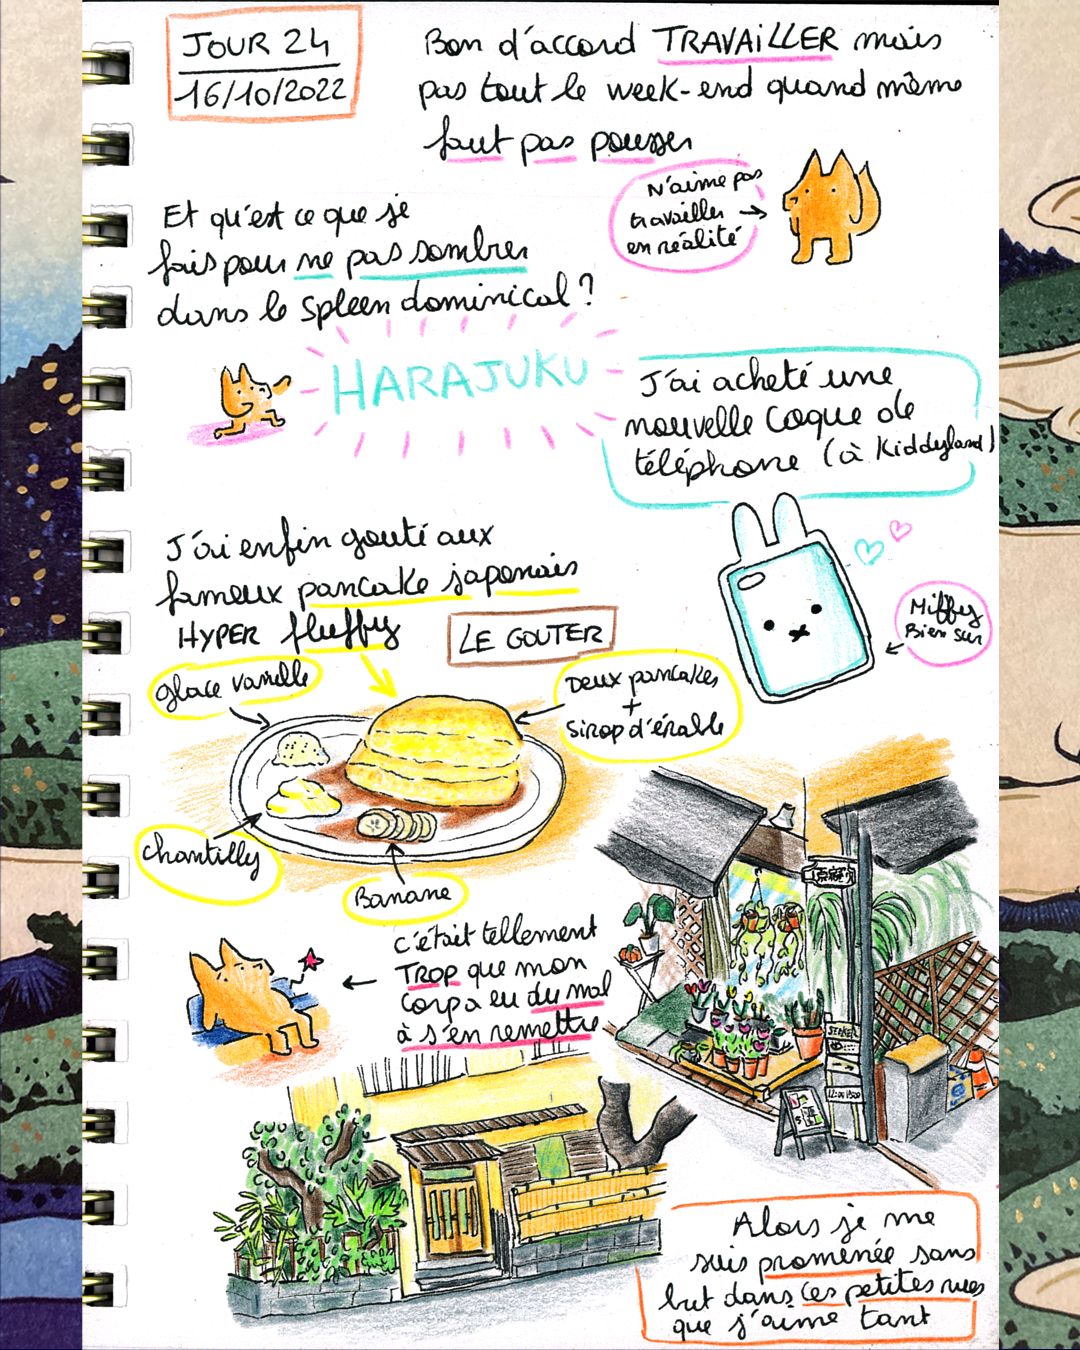 JOUR 24
16/10/2022
Bon d'accord TRAVAILLER mais
pas tout le week-end quand même
faut pas pousser
N'aime pas
travailler
en réalité
Et qu'est ce que je
fais pour ne pas sombrer
dans le spleen dominical ?
HARAJUKU
J'ai acheté une
nouvelle coque de
téléphone (à Kiddyland)
Miffy
Bien sur
J'ai enfin gouté aux
fameux pancake japonais
HYPER fluffy
LE GOUTER
glace vanille
Deux pancakes
+
Sirop d'érable
chantilly
Banane
C'était tellement
TROP que mon
corp a eu du mal
à s'en remettre
12:00
Alors je me
suis promenée sans
but dans ces petites rues
que j'aime tant